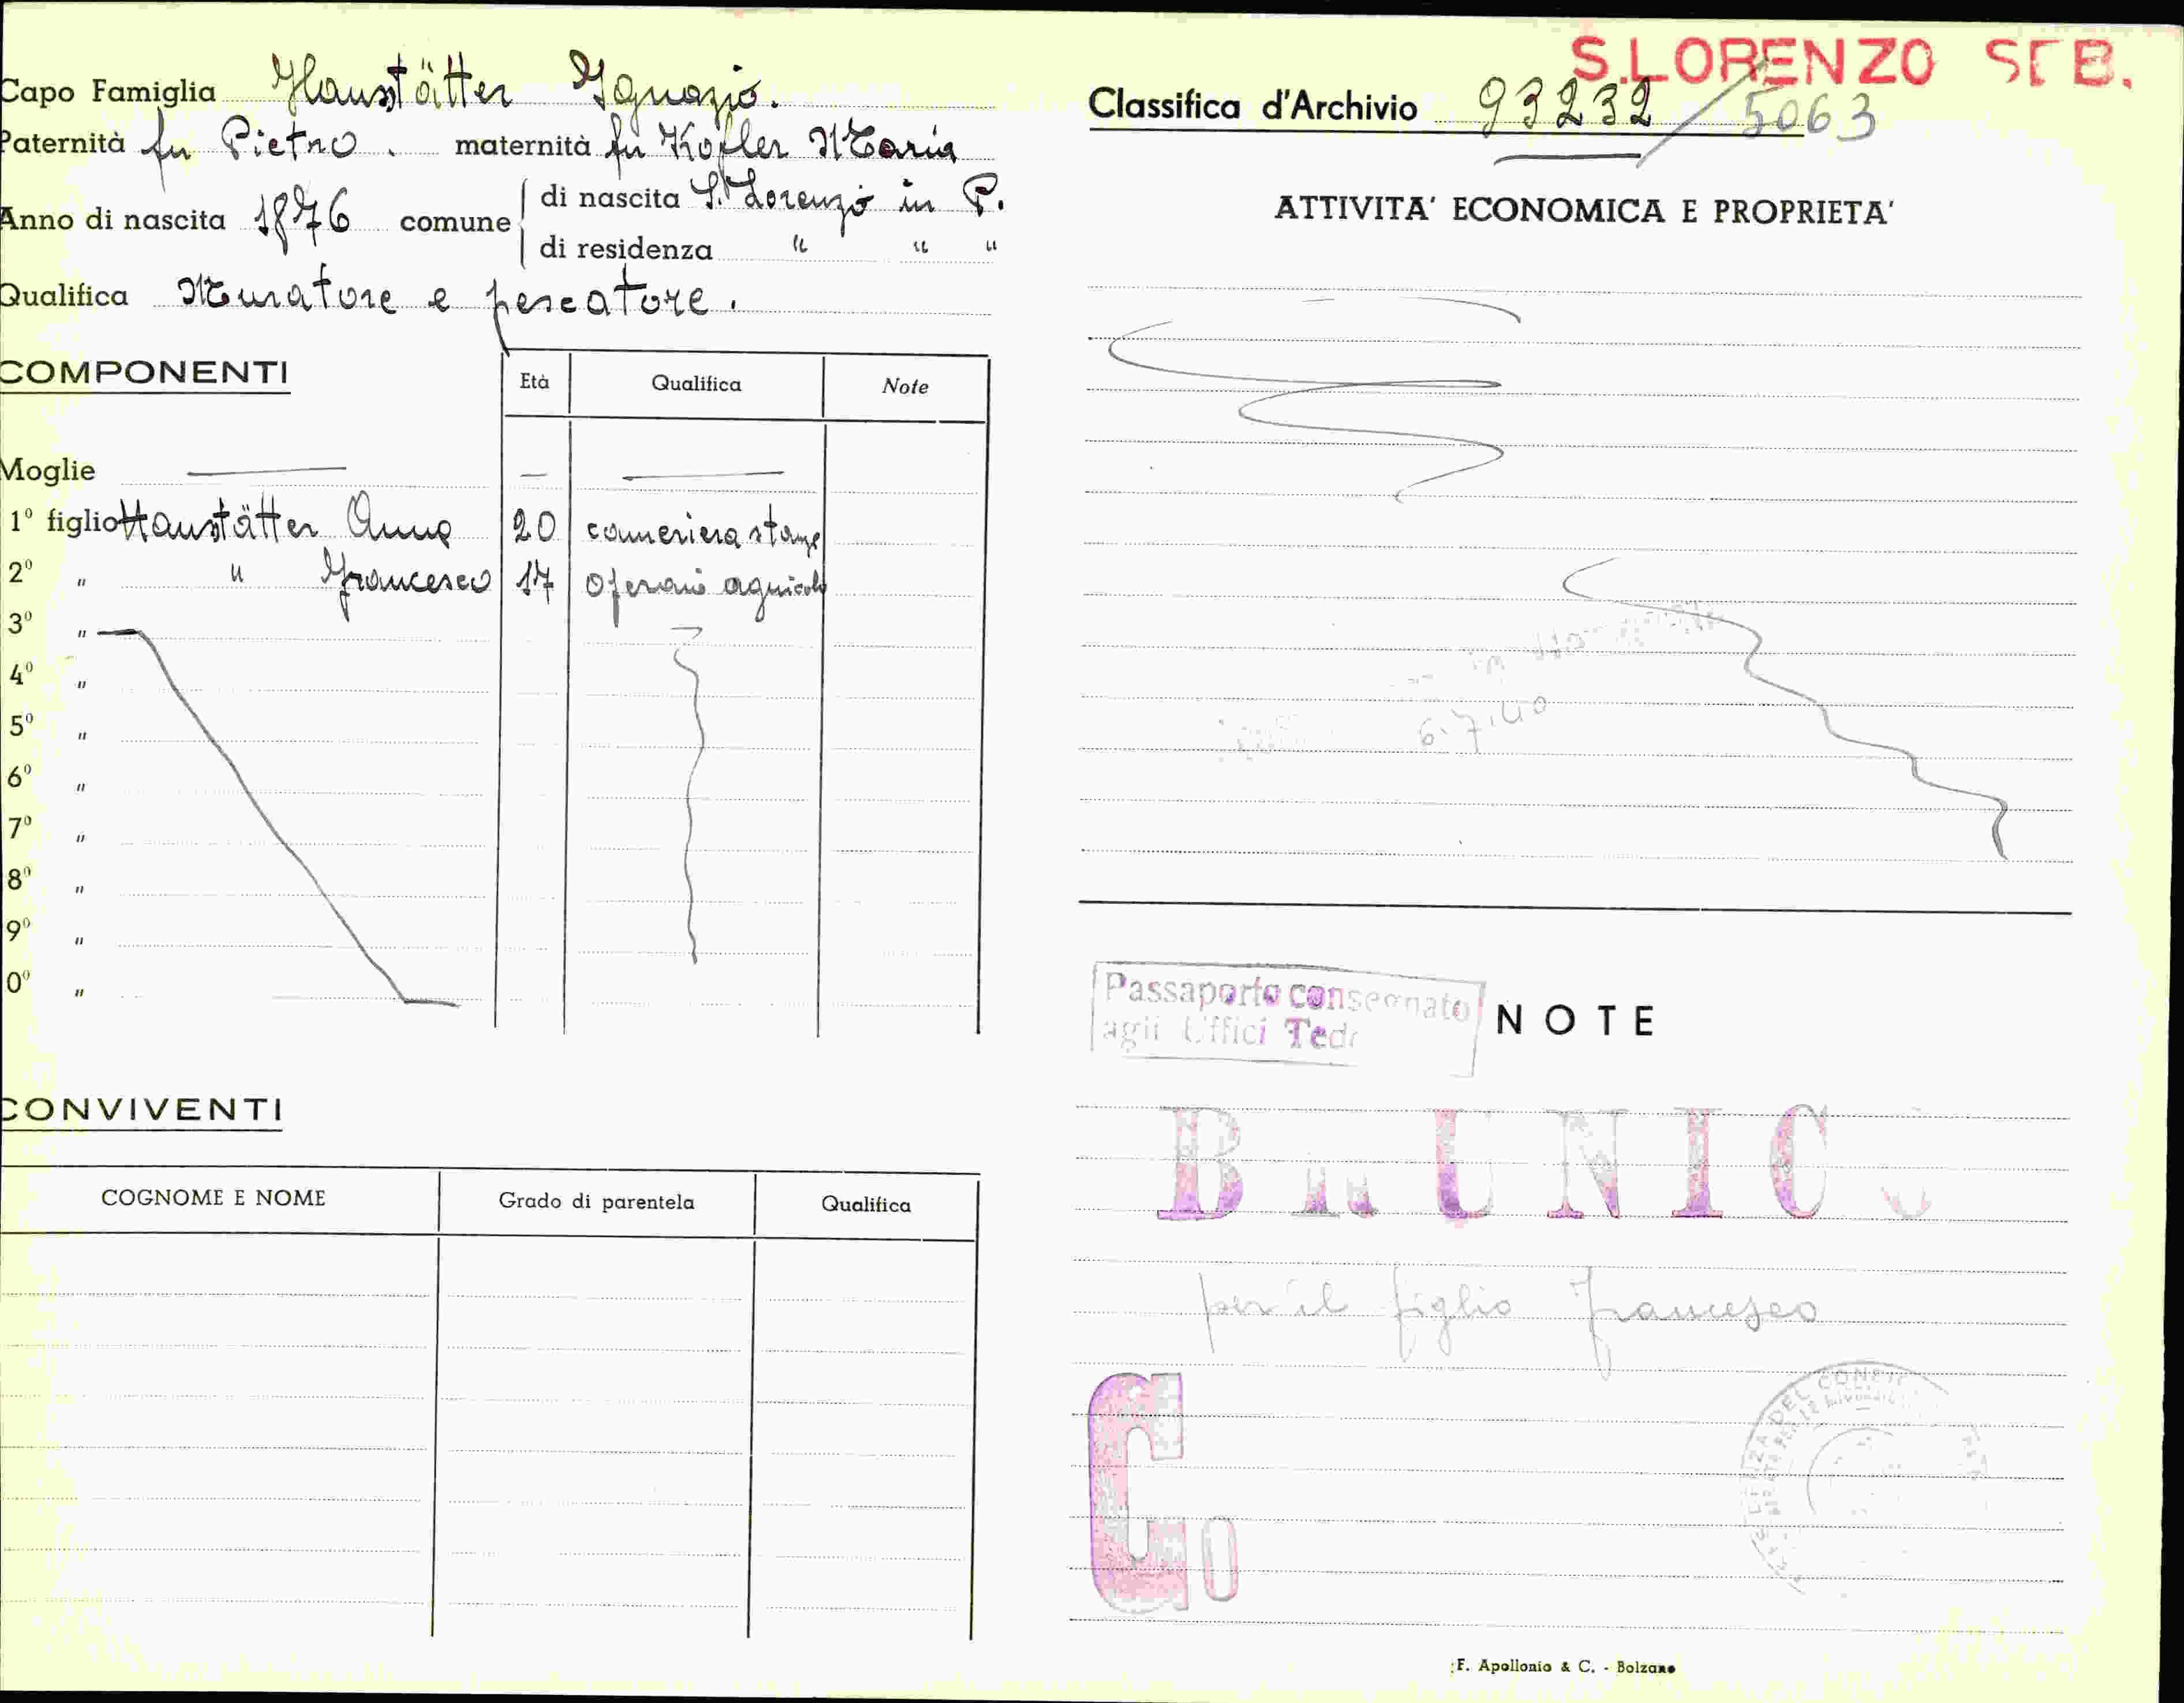 S.LORENZO SEB.
Capo Famiglia Hanstätter Ignazio.
Classifica d'Archivio 93232 / 5063
Paternità fu Pietro. maternità fu Kofler Maria
Anno di nascita 1876 comune
di nascita S. Lorenzo in P.
di residenza " " "
Qualifica Muratore e pescatore.
COMPONENTI
Età Qualifica Note
Moglie — — —
1º figlio Hanstätter Anna 20 cameriera stanze
2º " " Francesco 17 Operaio agricolo
3º "
4º "
5º "
6º "
7º "
8º "
9º "
0º "
CONVIVENTI
COGNOME E NOME Grado di parentela Qualifica
ATTIVITA' ECONOMICA E PROPRIETA'
6.7.40
Passaporto consegnato
agli Uffici Ted
NOTE
per il figlio Francesco
G0
F. Apollonio & C. - Bolzano